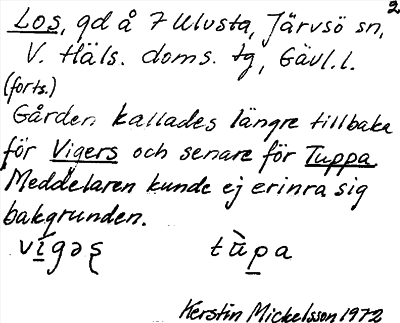 2
Los, gd å 7 Ulvsta, Järvsö sn,
V. Häls. doms. tg, Gävl.l.
(forts.)
Gården kallades längre tillbaka
för Vigers och senare för Tuppa.
Meddelaren kunde ej erinra sig
bakgrunden.
vi̲gəʂ tùp̲a
Kerstin Mickelsson 1972